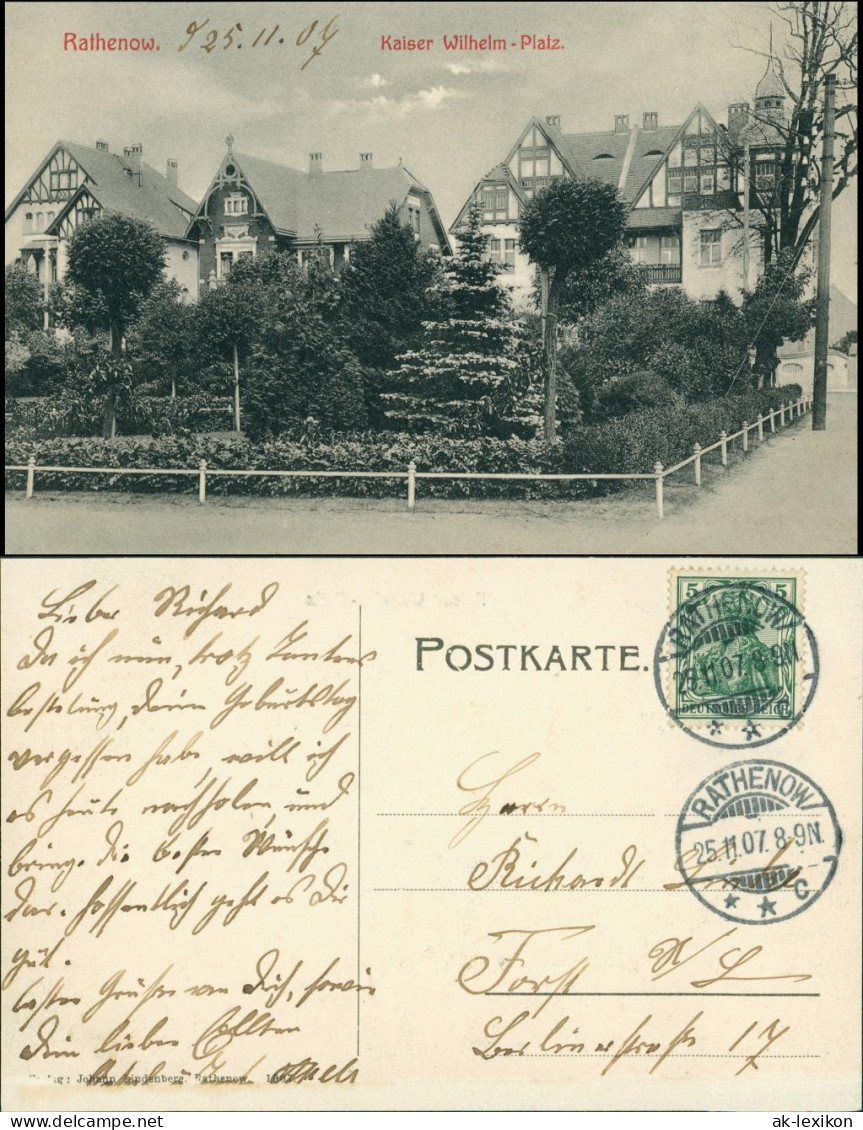 Rathenow.
25.11.07
Kaiser Wilhelm-Platz.
Lieber Richard
Da ich nun, trotz Tantens
bestelung, Deinen Geburtstag
vergessen habe, will ich
es heute nachholen, und
bringe Dir beste Wünsche
dar. Hoffentlich geht es Dir
gut.
besten Grüße an Dich, sowie
Dein lieben Eltern
POSTKARTE.
5 5
DEUTSCHES REICH
RATHENOW
25.11.07.8-9N.
* *
RATHENOW
25.11.07.8-9N.
* * C
Herrn
Richard
Forst N/L
Berlinerstraße 17
Johann Lindenberg, Rathenow.
ak-lexikon.com